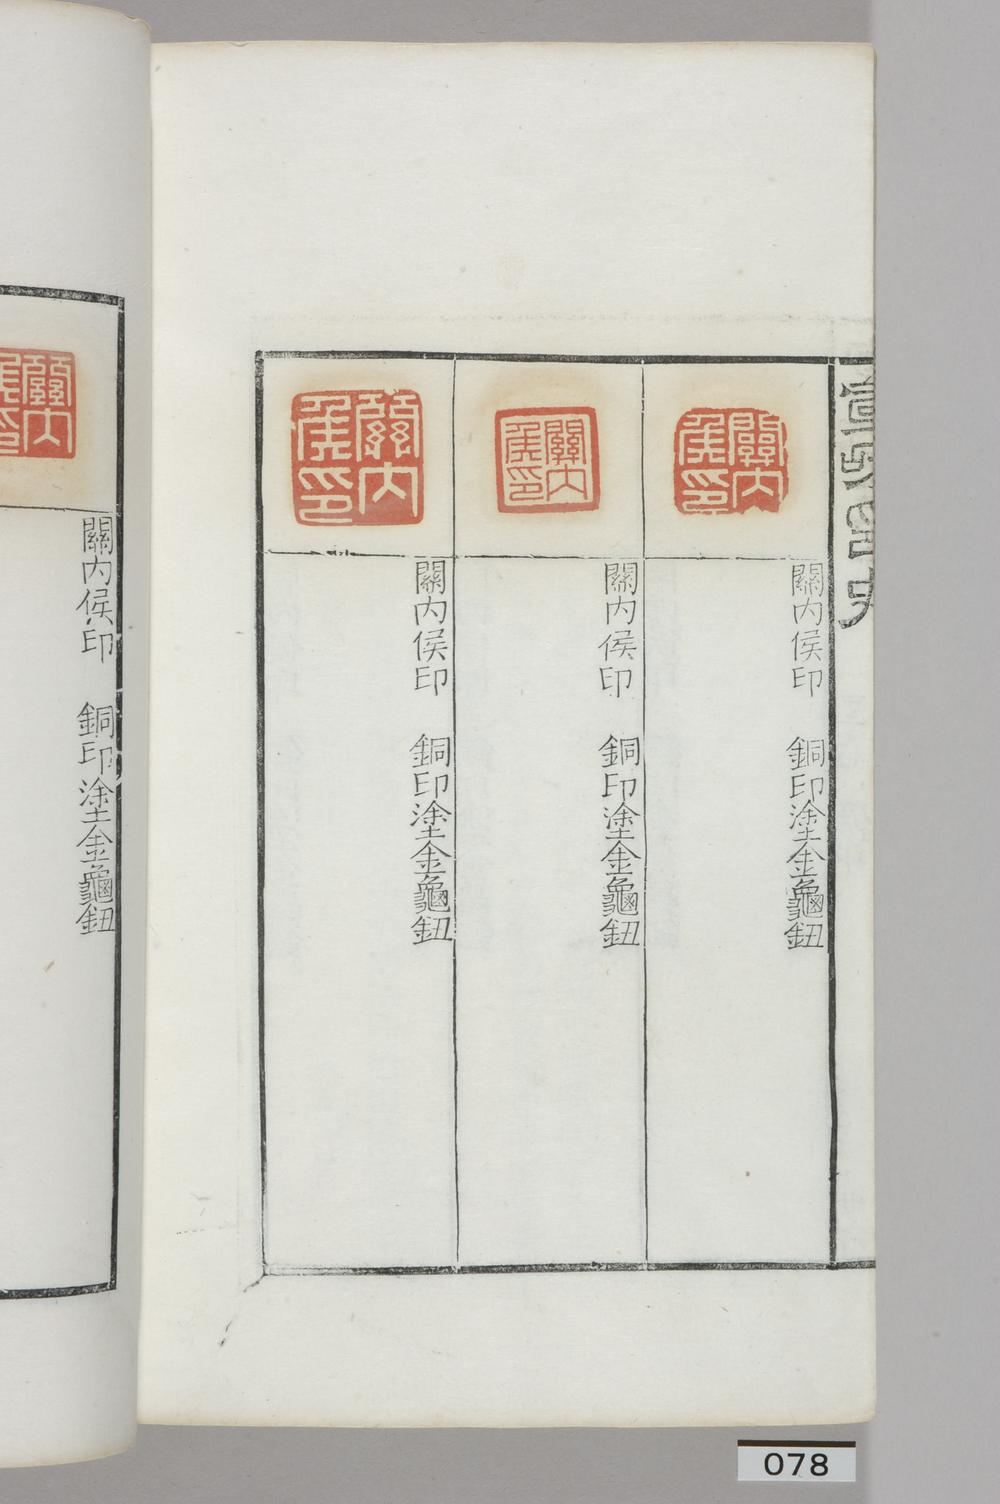 關內侯印 銅印塗金龜鈕
關內侯印
關內侯印 銅印塗金龜鈕
關內侯印
關內侯印 銅印塗金龜鈕
關內侯印
關內侯印 銅印塗金龜鈕
關內侯印
078